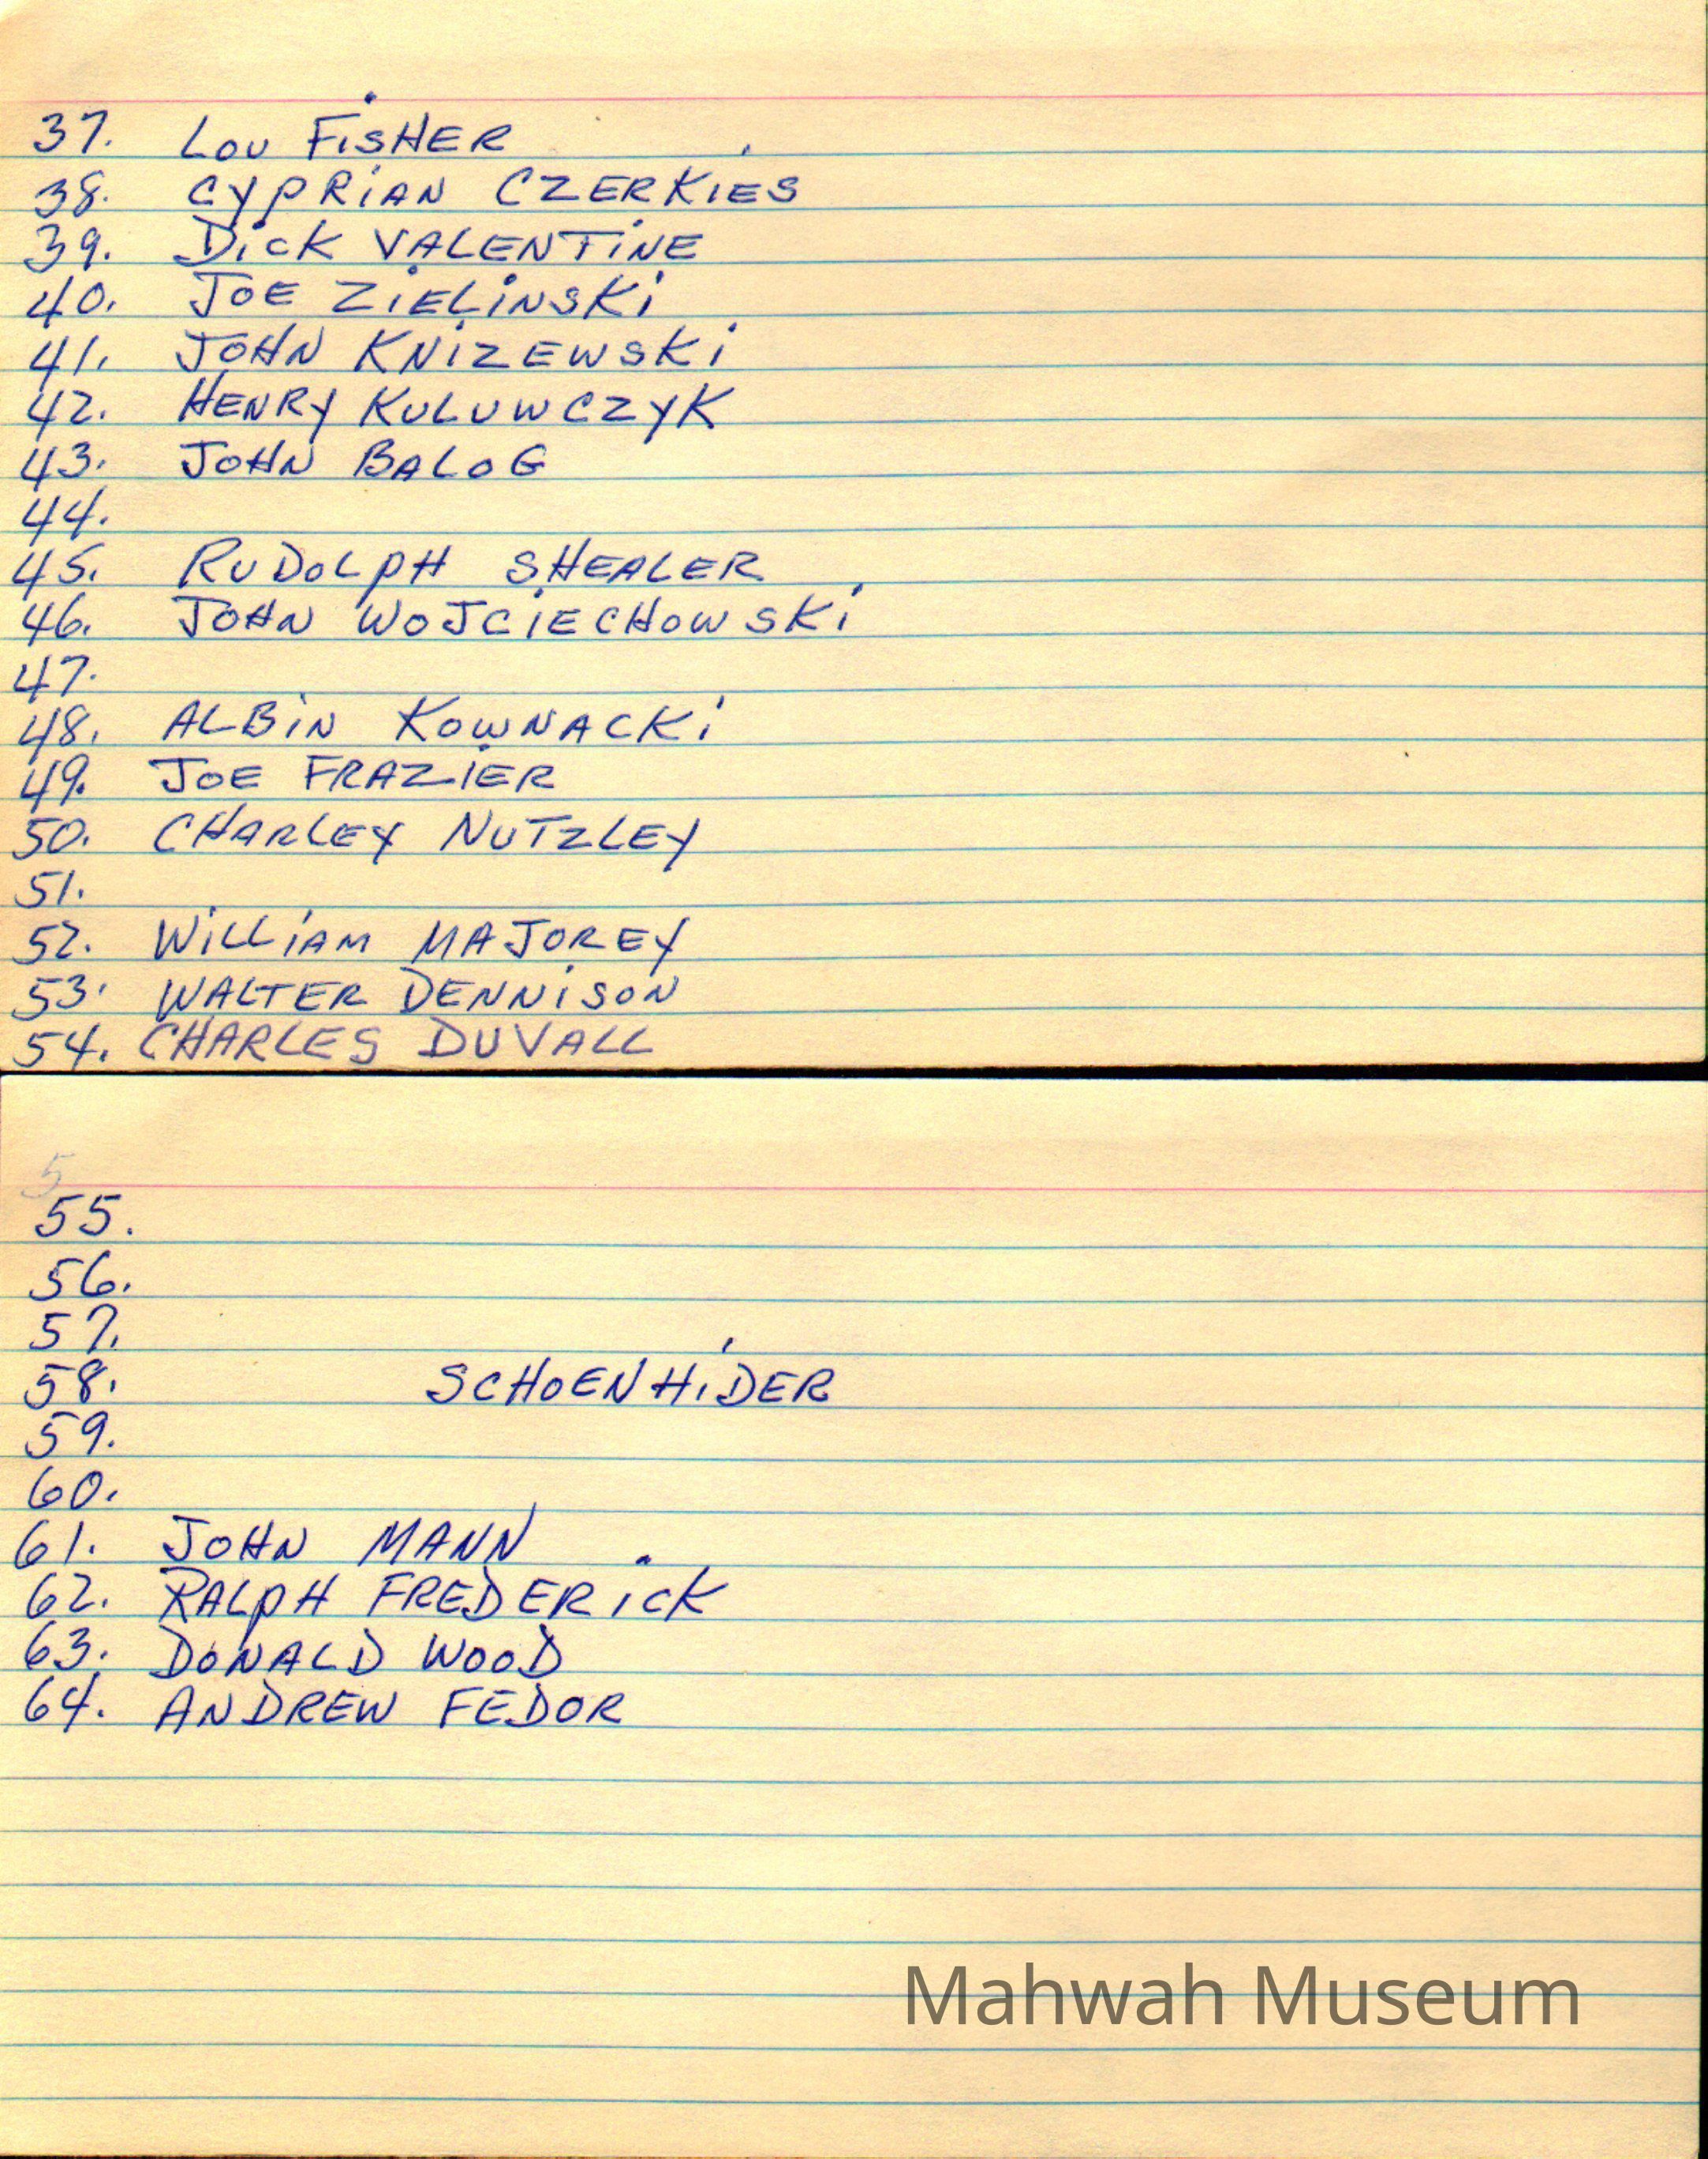 37. LOU FISHER
38. CYPRIAN CZERKIES
39. DICK VALENTINE
40. JOE ZIELINSKI
41. JOHN KNIZEWSKI
42. HENRY KULUWCZYK
43. JOHN BALOG
44.
45. RUDOLPH SHEALER
46. JOHN WOJCIECHOWSKI
47.
48. ALBIN KOWNACKI
49. JOE FRAZIER
50. CHARLEY NUTZLEY
51.
52. WILLIAM MAJOREY
53. WALTER DENNISON
54. CHARLES DUVALL
5
55.
56.
57.
58. SCHOENHIDER
59.
60.
61. JOHN MANN
62. RALPH FREDERICK
63. DONALD WOOD
64. ANDREW FEDOR
Mahwah Museum